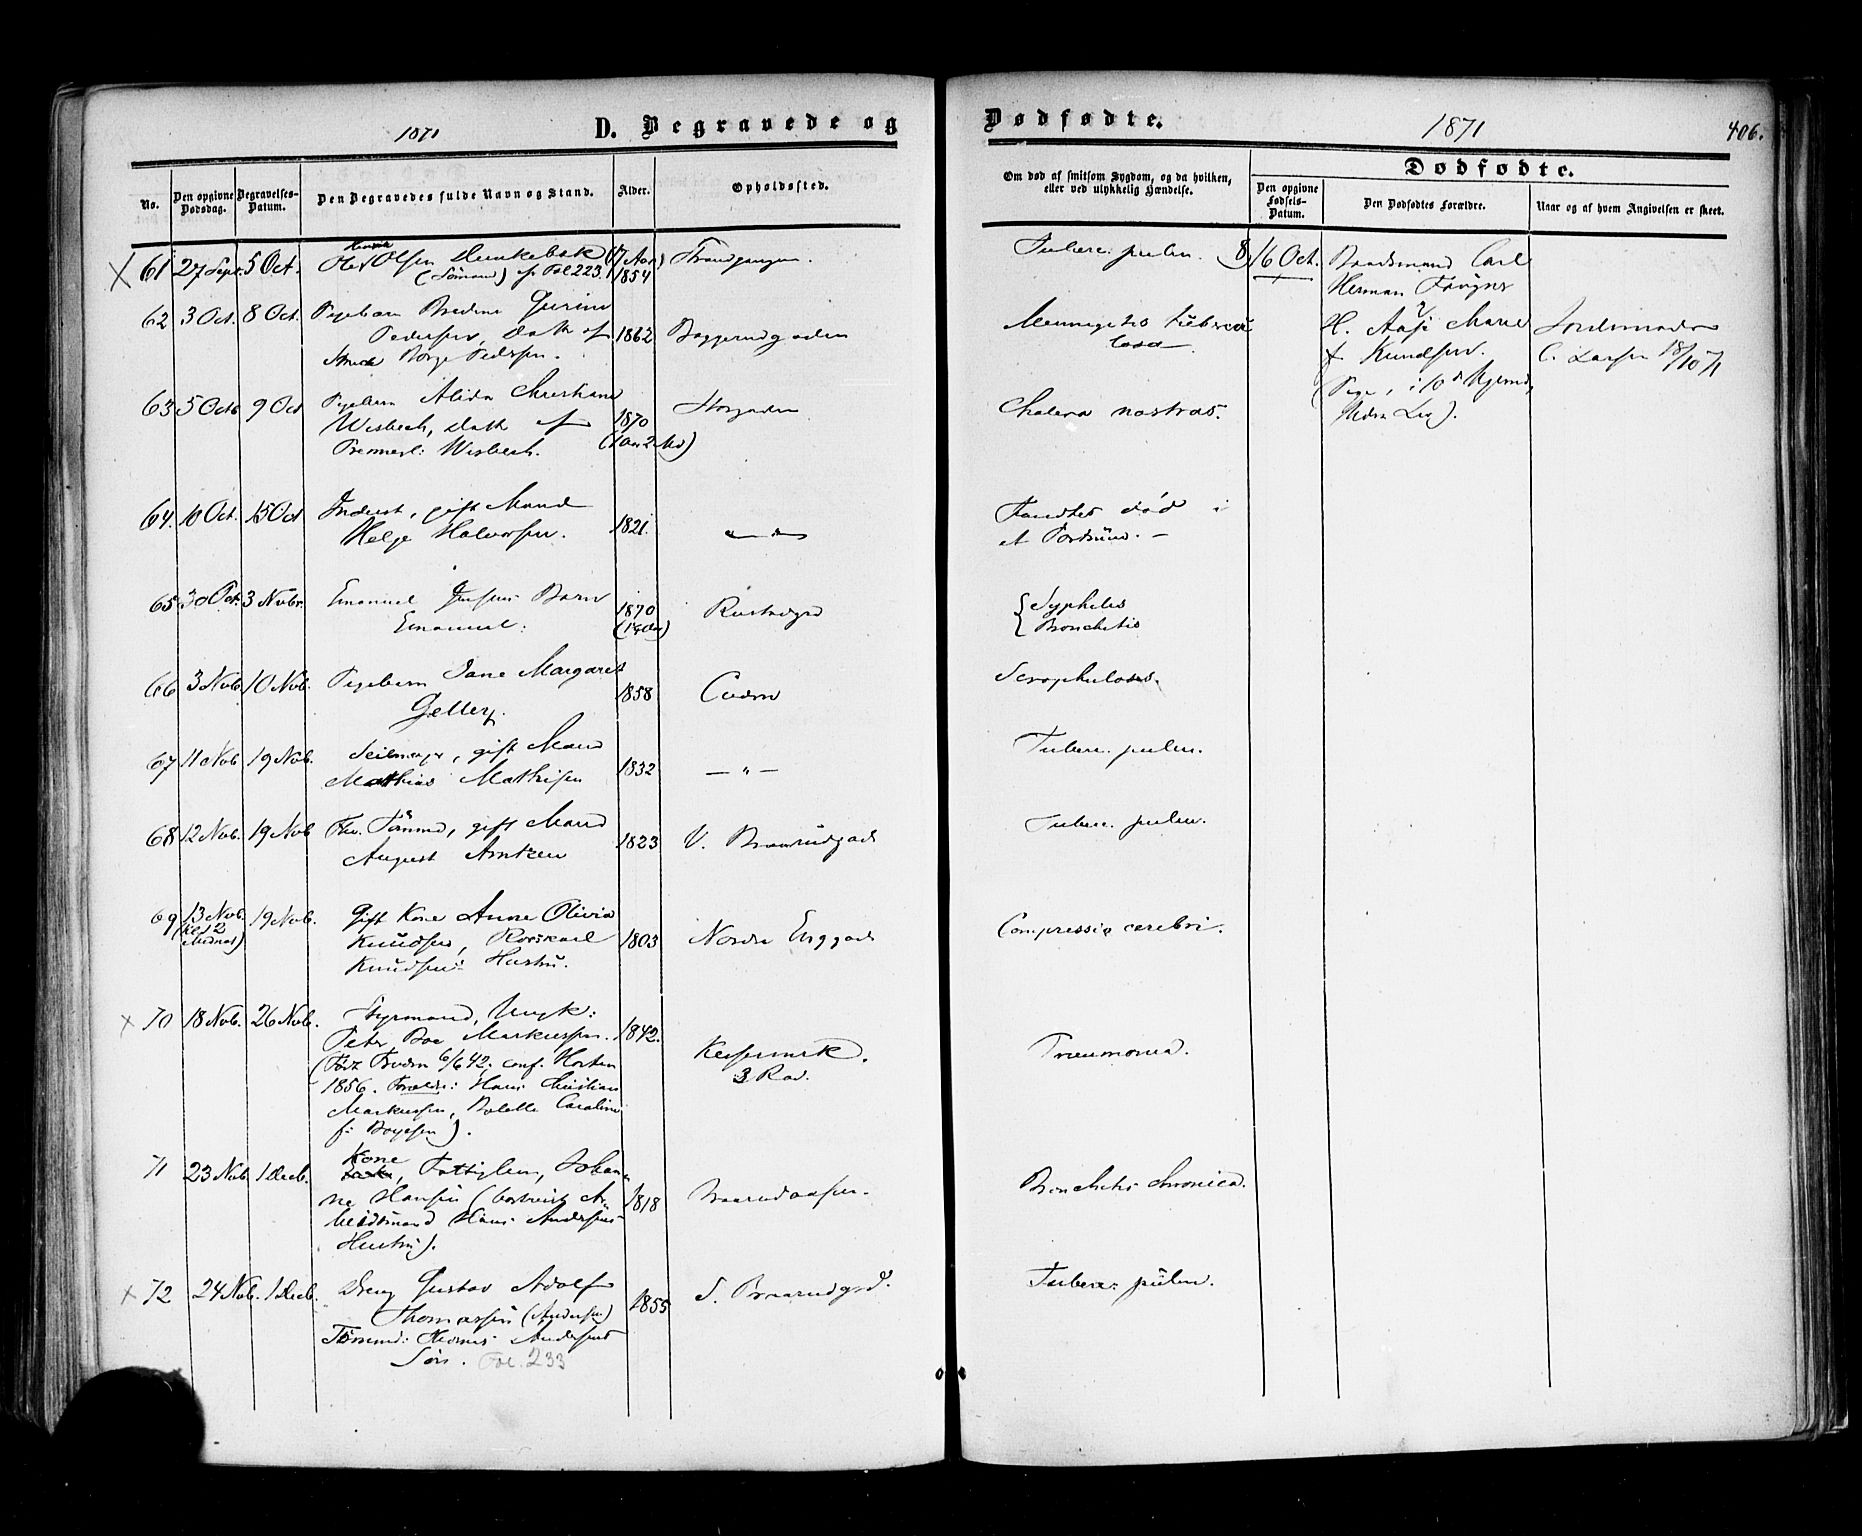 1871
D. Begravede og
No.
Den opgivne Dødsdag.
Begravelses-Datum.
Den Begravedes fulde Navn og Stand.
Alder.
Opholdssted.
61 27 Sept. 5 Oct.
Olsen
(Sømand) cf. Fol 223.
(17 Aar)
1854
62 3 Oct. 8 Oct. Pigebarn
Pedersen, Datt. af
Pedersen.
1862
63 5 Oct. 9 Oct Pigebarn Alida Christiane
Wisbech, Datt. af
Wisbech.
1870
(1 Aar 2 Md)
64. 10 Oct. 15 Oct
Inderst, gift Mand
Helge Halvorsen.
1821.
65 30 Oct. 3 Novbr.
Emanuel Jensens Barn
Emanuel.
1870
66 3 Nov. 10 Nov. Pigebarn Jane Margaret
1858
67 11 Nov 19 Nov. gift Mand
Mathias Mathisen
1832
— " —
68 12 Nov. 19 Nov gift Mand
August Arntzen
1823
V. Braarudgad
69 13 Nov. 19 Nov.
Gift Kone Anne Olivia
Knudsen,
Knudsens Hustru.
1803
Nordre Enggad
70 18 Nov. 26 Nov. Styrmand, Ungk:
Peter Boe Markussen.
(Født 6/6 42; conf. Horten
1856. Forældre: Hans Christian
Markussen, Bolette Caroline
f. Boyesen).
1842.
3 Rad.
71 23 Nov. 1 Decb.
Kone
Fattiglem, Johan-
ne Hansen (bortreist Ar-
beidsmand Hans Andersens
Hustru).
1818
Braarudaasen.
72 24 Nov. 1 Decb. Dreng Gustav Adolf
Thomassen (Andersen)
Tømmermd: Thomas Andersens
Søn. Fol. 233
1855
S. Braarudgd.
Dødfødte.
1871
406.
Om død af smitsom Sygdom, og da hvilken,
eller ved ulykkelig Hændelse.
Dødfødte.
Den opgivne Fødsels-Datum.
Den Dødfødtes Forældre.
Naar og af hvem Angivelsen er skeet.
Tuberc. pulm.
8. 16 Oct.
Baadsmand Carl
Herman
H. Marie
f. Knudsen.
Jordemoder
C. Larsen 18/10 71
Meningitis tubercu
losa
Cholera nostras.
Fandtes død i
et
{ Syphilis
Bronchitis
Scrophulosis.
Tuberc. pulm.
Tuberc. pulm.
Compressio cerebri.
Pneumonia.
Bronchitis chronica.
Tuberc. pulm.